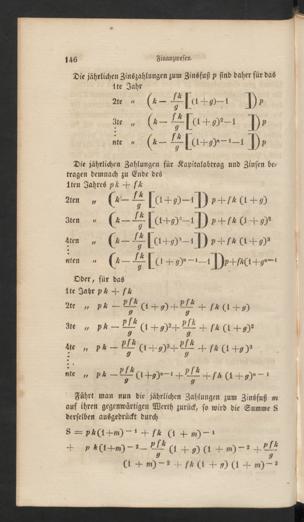 146 Finanzwesen
Die jährlichen Zinszahlungen zum Zinsfuß p sind daher für das
1te Jahr
2te „ (k − fk/g [(1+g)−1]) p
3te „ (k − fk/g [(1+g)²−1]) p
⋮
nte „ (k − fk/g [(1+g)ⁿ⁻¹−1]) p
Die jährlichen Zahlungen für Kapitalabtrag und Zinsen be-
tragen demnach zu Ende des
1ten Jahres pk + fk
2ten „ (k − fk/g [(1+g)−1]) p + fk (1+g)
3ten „ (k − fk/g [(1+g)²−1]) p + fk (1+g)²
4ten „ (k − fk/g [(1+g)³−1]) p + fk (1+g)³
⋮
nten „ (k − fk/g [(1+g)ⁿ⁻¹−1]) p + fk (1+g)ⁿ⁻¹
Oder, für das
1te Jahr pk + fk
2te „ pk − pfk/g (1+g) + pfk/g + fk (1+g)
3te „ pk − pfk/g (1+g)² + pfk/g + fk (1+g)²
4te „ pk − pfk/g (1+g)³ + pfk/g + fk (1+g)³
⋮
nte „ pk − pfk/g (1+g)ⁿ⁻¹ + pfk/g + fk (1+g)ⁿ⁻¹
Führt man nun die jährlichen Zahlungen zum Zinsfuß m
auf ihren gegenwärtigen Werth zurück, so wird die Summe S
derselben ausgedrückt durch
S = pk(1+m)⁻¹ + fk (1 + m)⁻¹
+ pk(1+m)⁻² − pfk/g (1 + g) (1 + m)⁻² + pfk/g
(1 + m)⁻² + fk (1 + g) (1 + m)⁻²